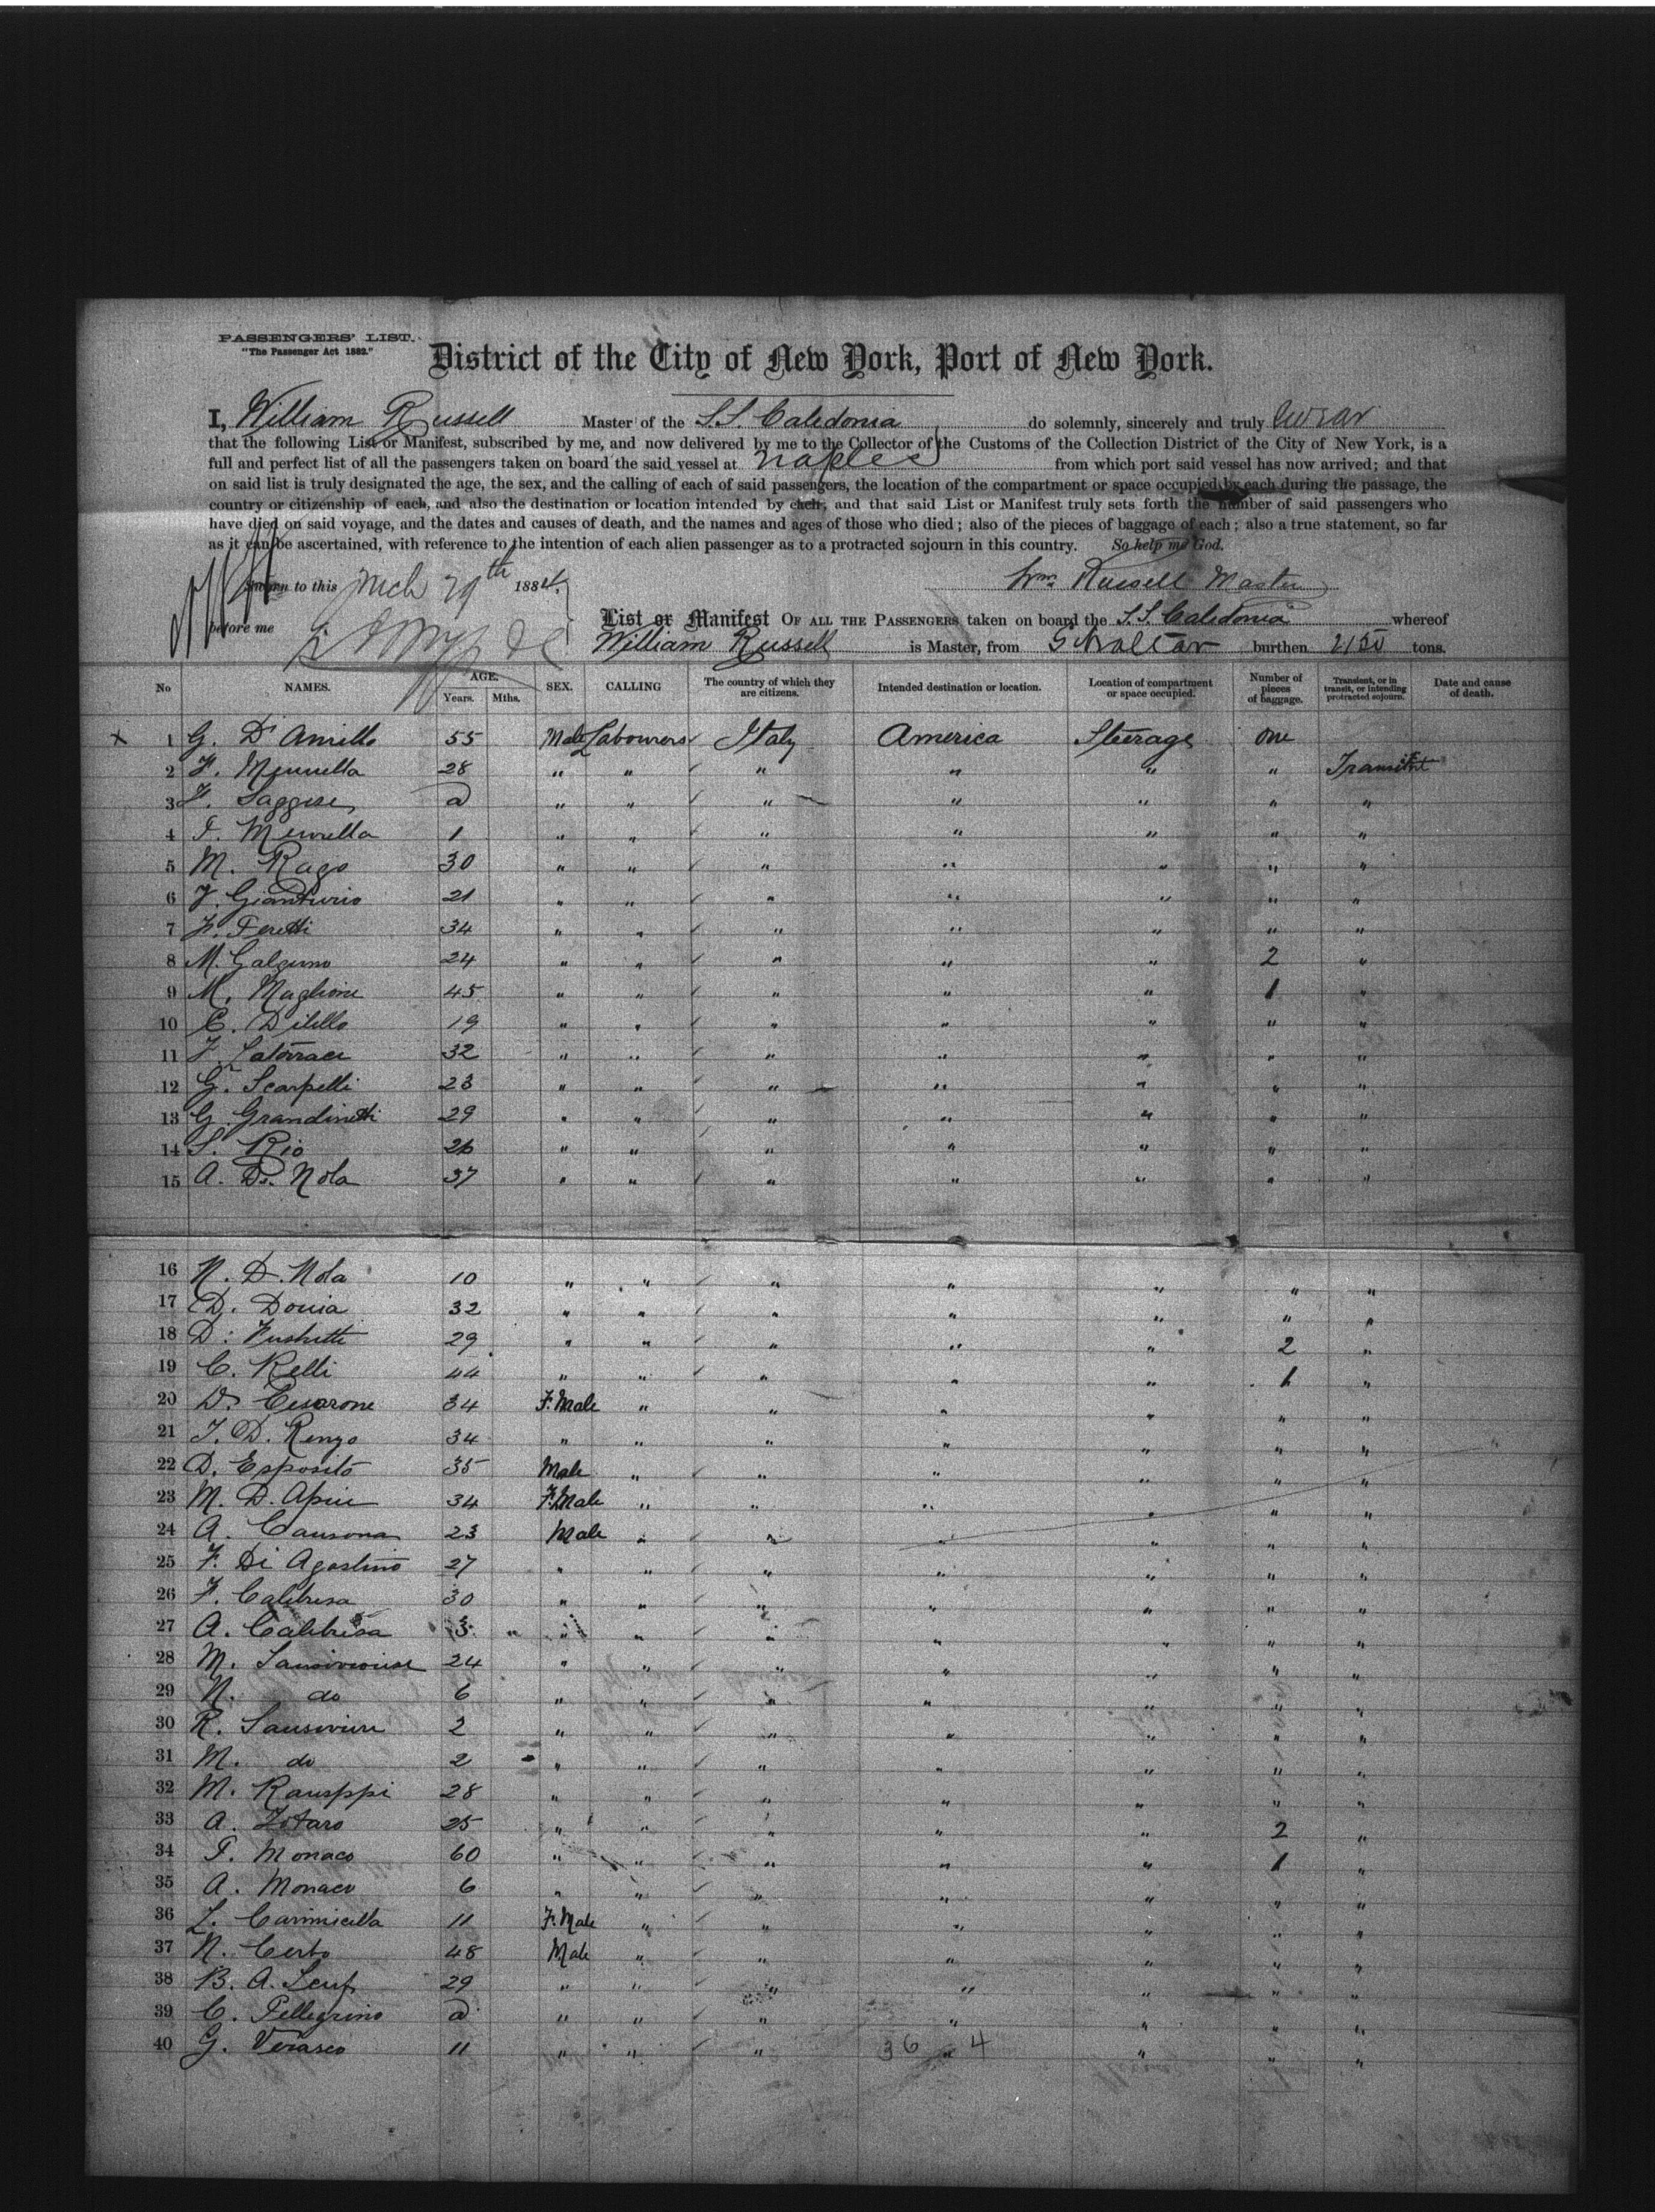 PASSENGERS' LIST.
"The Passenger Act 1882."
District of the City of New York, Port of New York.
I, William Russell Master of the S.S. Caledonia do solemnly, sincerely and truly swear
that the following List or Manifest, subscribed by me, and now delivered by me to the Collector of the Customs of the Collection District of the City of New York, is a
full and perfect list of all the passengers taken on board the said vessel at Naples from which port said vessel has now arrived; and that
on said list is truly designated the age, the sex, and the calling of each of said passengers, the location of the compartment or space occupied by each during the passage, the
country or citizenship of each, and also the destination or location intended by each, and that said List or Manifest truly sets forth the number of said passengers who
have died on said voyage, and the dates and causes of death, and the names and ages of those who died; also of the pieces of baggage of each; also a true statement, so far
as it can be ascertained, with reference to the intention of each alien passenger as to a protracted sojourn in this country. So help me God.
Sworn to this Mch 29th 1884. Wm Russell Master
before me
List or Manifest OF ALL THE PASSENGERS taken on board the S.S. Caledonia whereof
William Russell is Master, from burthen 2150 tons.
No NAMES. AGE. Years. Mths. SEX. CALLING The country of which they are citizens. Intended destination or location. Location of compartment or space occupied. Number of pieces of baggage. Transient, or in transit, or intending protracted sojourn. Date and cause of death.
X 1 G. D'Amillo 55 Male Labourers Italy America Steerage one
2 F. Mennella 28 " " " " " " Transient
3 F. Saggese " " " " " " "
4 1 " " " " " " "
5 M. Rago 30 " " " " " " "
6 21 " " " " " " "
7 F. Feretti 34 " " " " " " "
8 M. Galguno 24 " " " " " 2 "
9 M. Maglione 45 " " " " " 1 "
10 C. Dilillo 19 " " " " " " "
11 F. Latorraca 32 " " " " " " "
12 G. Scarpelli 23 " " " " " " "
13 G. Grandinetti 29 " " " " " " "
14 S. Rio 26 " " " " " " "
15 A. Di Nola 37 " " " " " " "
16 N. D. Nola 10 " " " " " " "
17 D. Douia 32 " " " " " " "
18 D. Fushitti 29 " " " " " 2 "
19 C. Relli 44 " " " " " 1 "
20 D. Cesarone 34 F. Male " " " " " "
21 T. D. Renzo 34 " " " " " " "
22 D. Esposito 35 Male " " " " " "
23 M. D. 34 F. Male " " " " " "
24 A. Cansona 23 Male " " " " " "
25 F. Di Agostino 27 " " " " " " "
26 F. Calibrisa 30 " " " " " " "
27 A. Calibrisa 3 " " " " " " " "
28 M. 24 " " " " " " "
29 N. do 6 " " " " " " "
30 R. 2 " " " " " " "
31 M. do 2 " " " " " " "
32 M. Rausppi 28 " " " " " " "
33 A. Zotaro 25 " " " " " 2 "
34 T. Monaco 60 " " " " " 1 "
35 A. Monaco 6 " " " " " " "
36 L. Carimicella 11 F. Male " " " " " "
37 N. Certo 48 Male " " " " " "
38 B. A. 29 " " " " " " "
39 C. Pellegrino " " " " " " "
40 G. Verasco 11 " " " " " " "
36 4